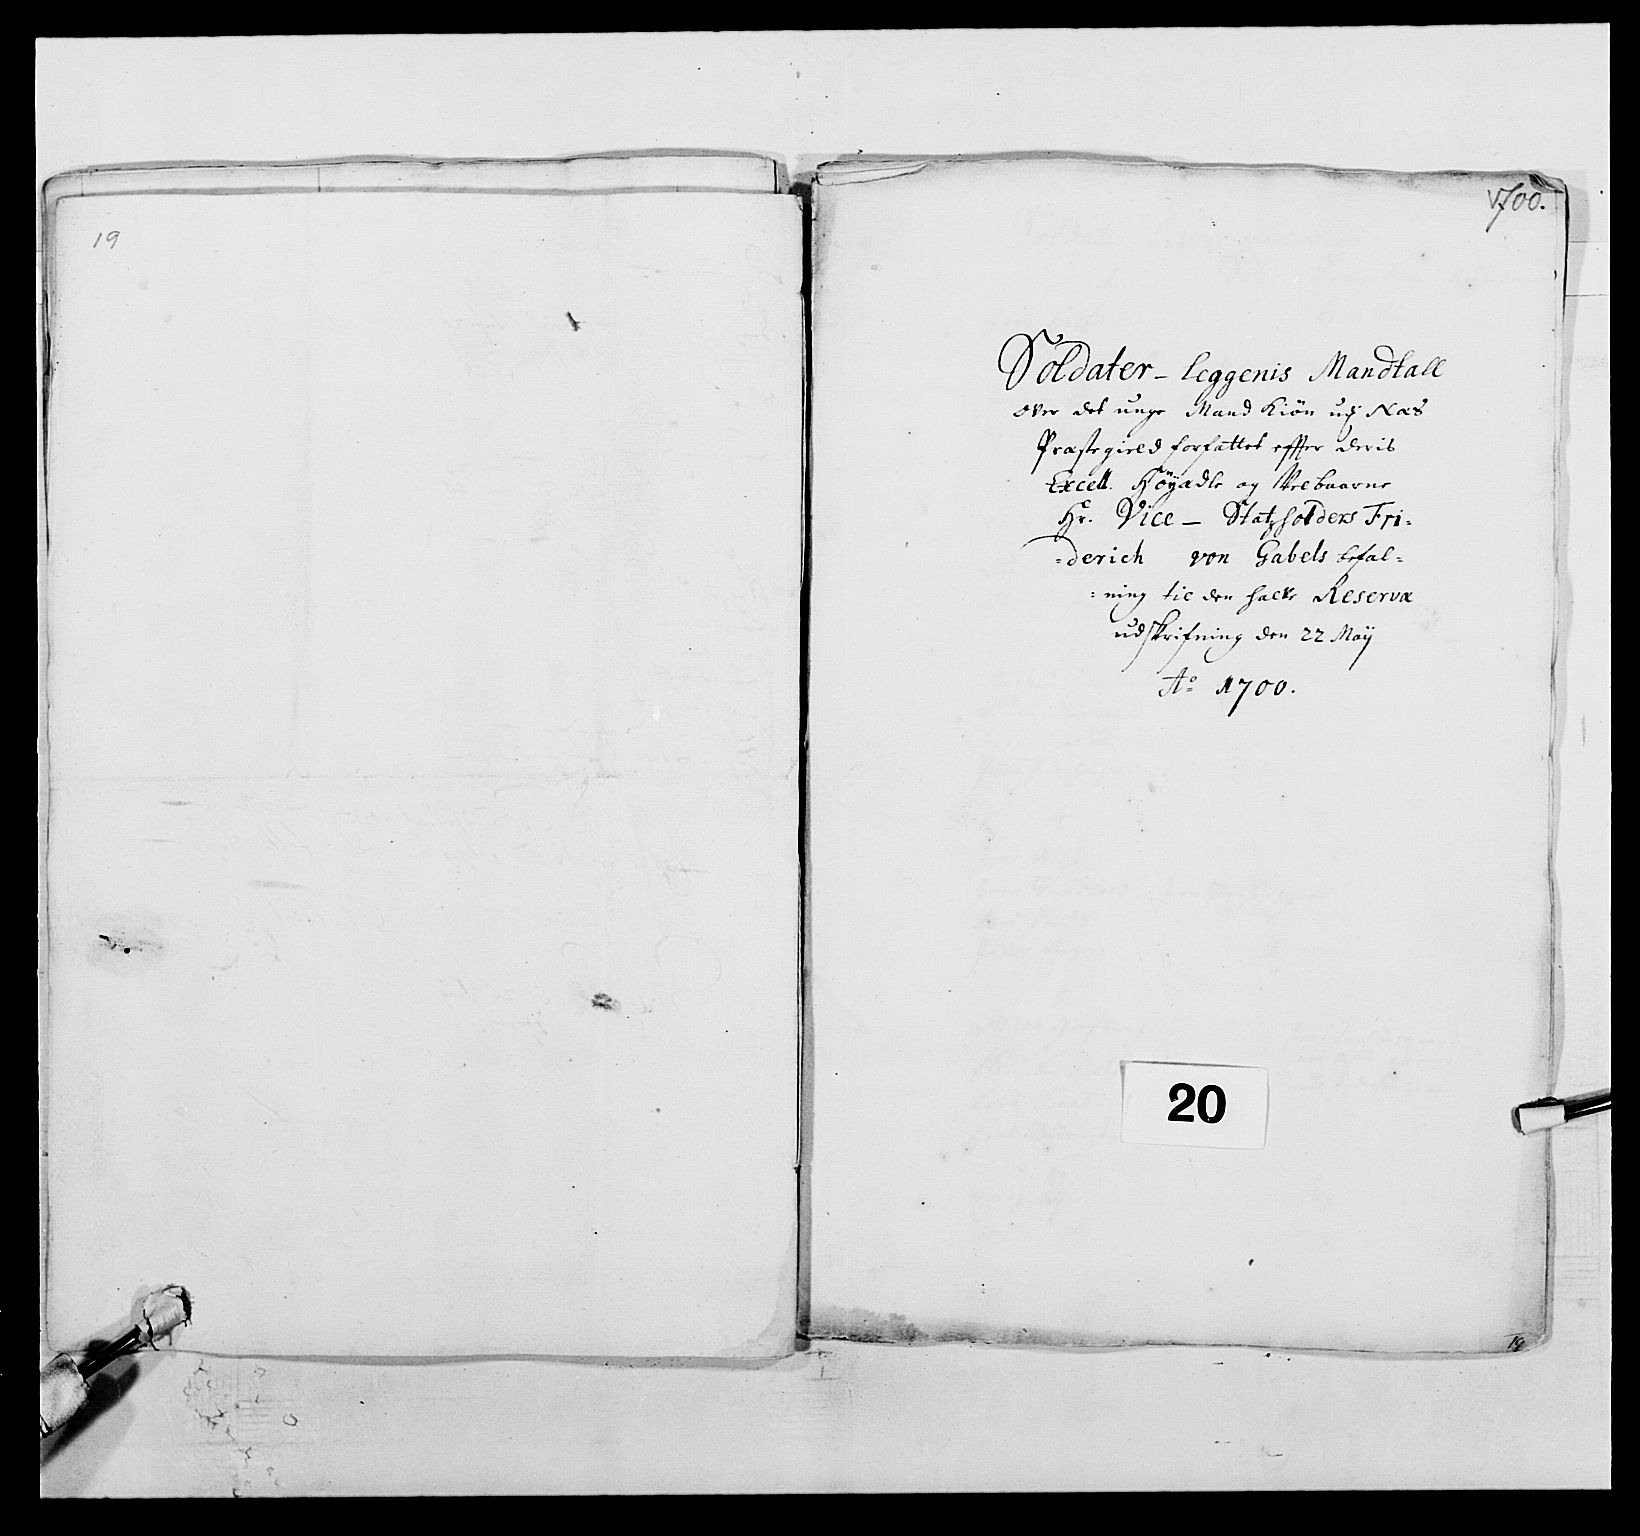 19
1700.
Soldater-leggenis Mandtall
over det unge Mand Kiøn udj Næs
Præstegield forfattet effter deris
Excell. Höyædle og Velbaarne
Hr. Vice- Statholders Fri-
=derich von Gabels befal=
=ning til den halve Reserve
udskrifning den 22 Maÿ
Ao 1700.
20
19